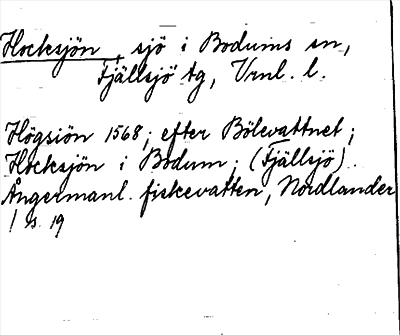 Hocksjön, sjö i Bodums sn,
Fjällsjö tg, Vrnl. l.
Högsiön 1568; efter Bölevattnet;
Hocksjön i Bodum; (Fjällsjö).
Ångermanl. fiskevatten, Nordlander
1 s. 19